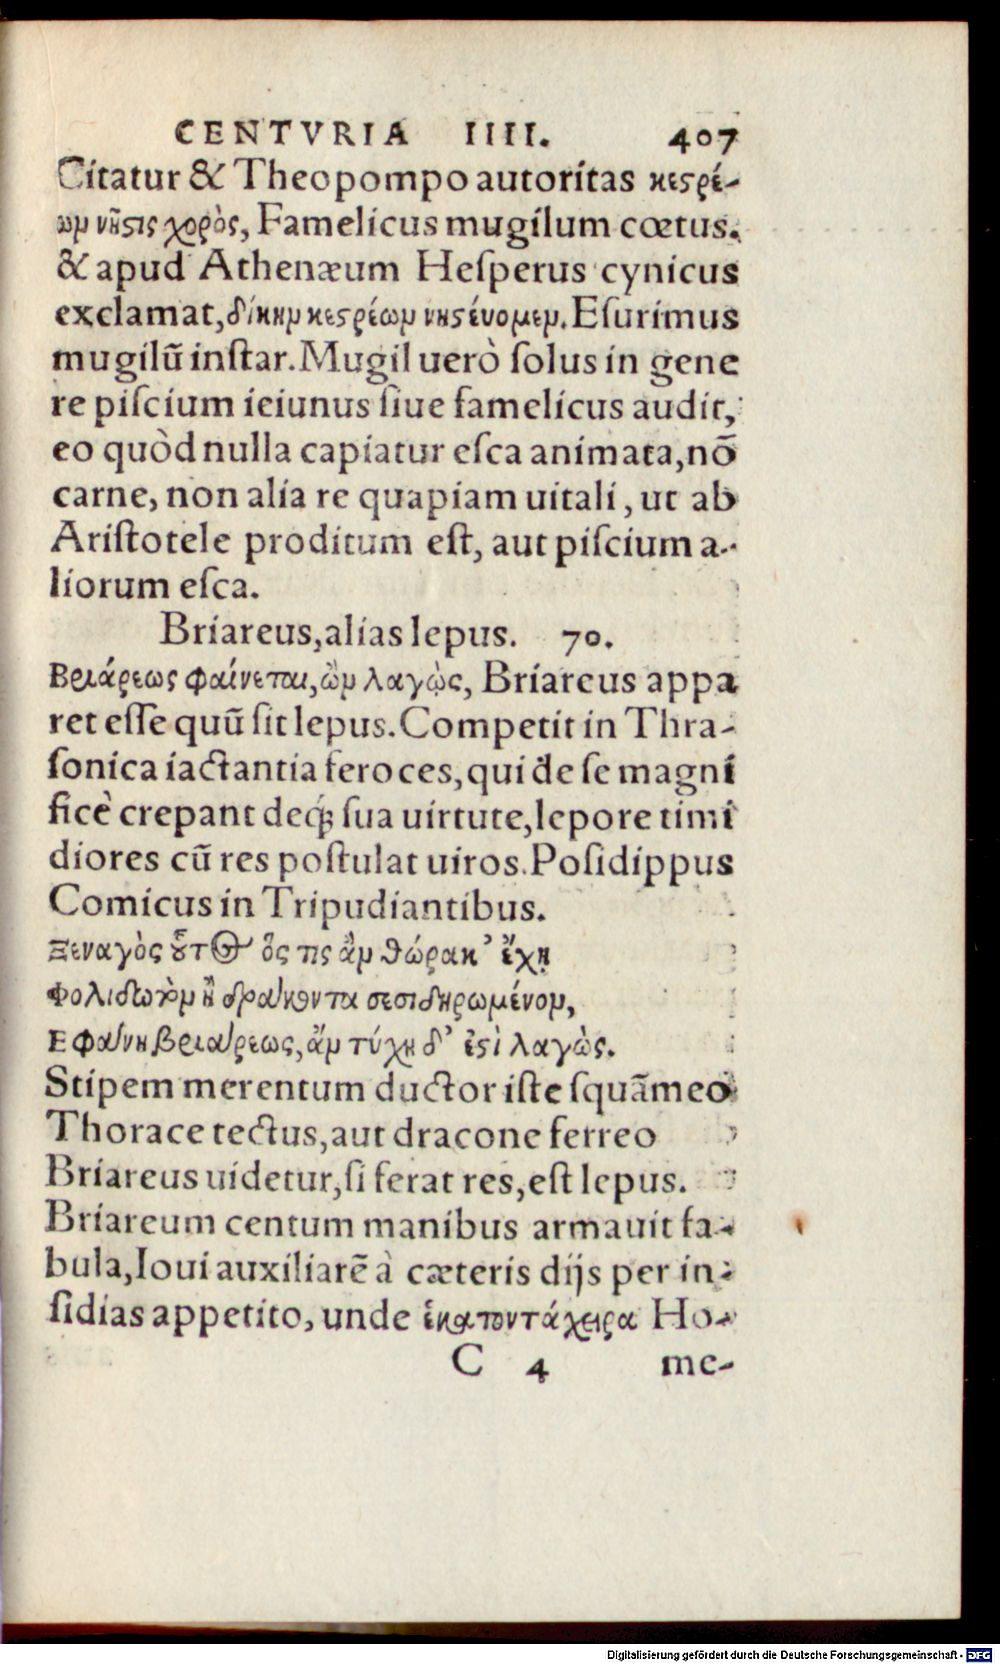 CENTVRIA IIII. 407
Citatur & Theopompo autoritas κεςρέ-
ωμ νῆςις χορὸς, Famelicus mugilum cœtus.
& apud Athenæum Heſperus cynicus
exclamat, δίκημ κεςρέωμ νηςεύομεμ. Eſurimus
mugilū inſtar. Mugil uerò ſolus in gene
re piſcium ieiunus ſiue famelicus audit,
eo quòd nulla capiatur eſca animata, nō
carne, non alia re quapiam uitali, ut ab
Ariſtotele proditum eſt, aut piſcium a-
liorum eſca.
Briareus, alias lepus. 70.
Βριάρεως φαίνεται, ὢμ λαγῲς, Briareus appa
ret eſſe quū ſit lepus. Competit in Thra-
ſonica iactantia feroces, qui de ſe magni
ficè crepant deq́ꝫ ſua uirtute, lepore timi
diores cū res poſtulat uiros. Poſidippus
Comicus in Tripudiantibus.
Ξεναγὸς ȣ̃τος ὅς τις ἂμ θώρακ’ ἔχῃ
Φολιδωτὸμ ἢ δράκοντα σεσιδηρωμένομ,
Εφάνη βριάρεως, ἂμ τύχη δ’ ἐςὶ λαγὼς.
Stipem merentum ductor iſte ſquāmeo
Thorace tectus, aut dracone ferreo
Briareus uidetur, ſi ferat res, eſt lepus.
Briareum centum manibus armauit fa-
bula, Ioui auxiliarē à cæteris dijs per in-
ſidias appetito, unde ἑκατοντάχειρα Ho-
C 4 me-
Digitalisierung gefördert durch die Deutsche Forschungsgemeinschaft - DFG